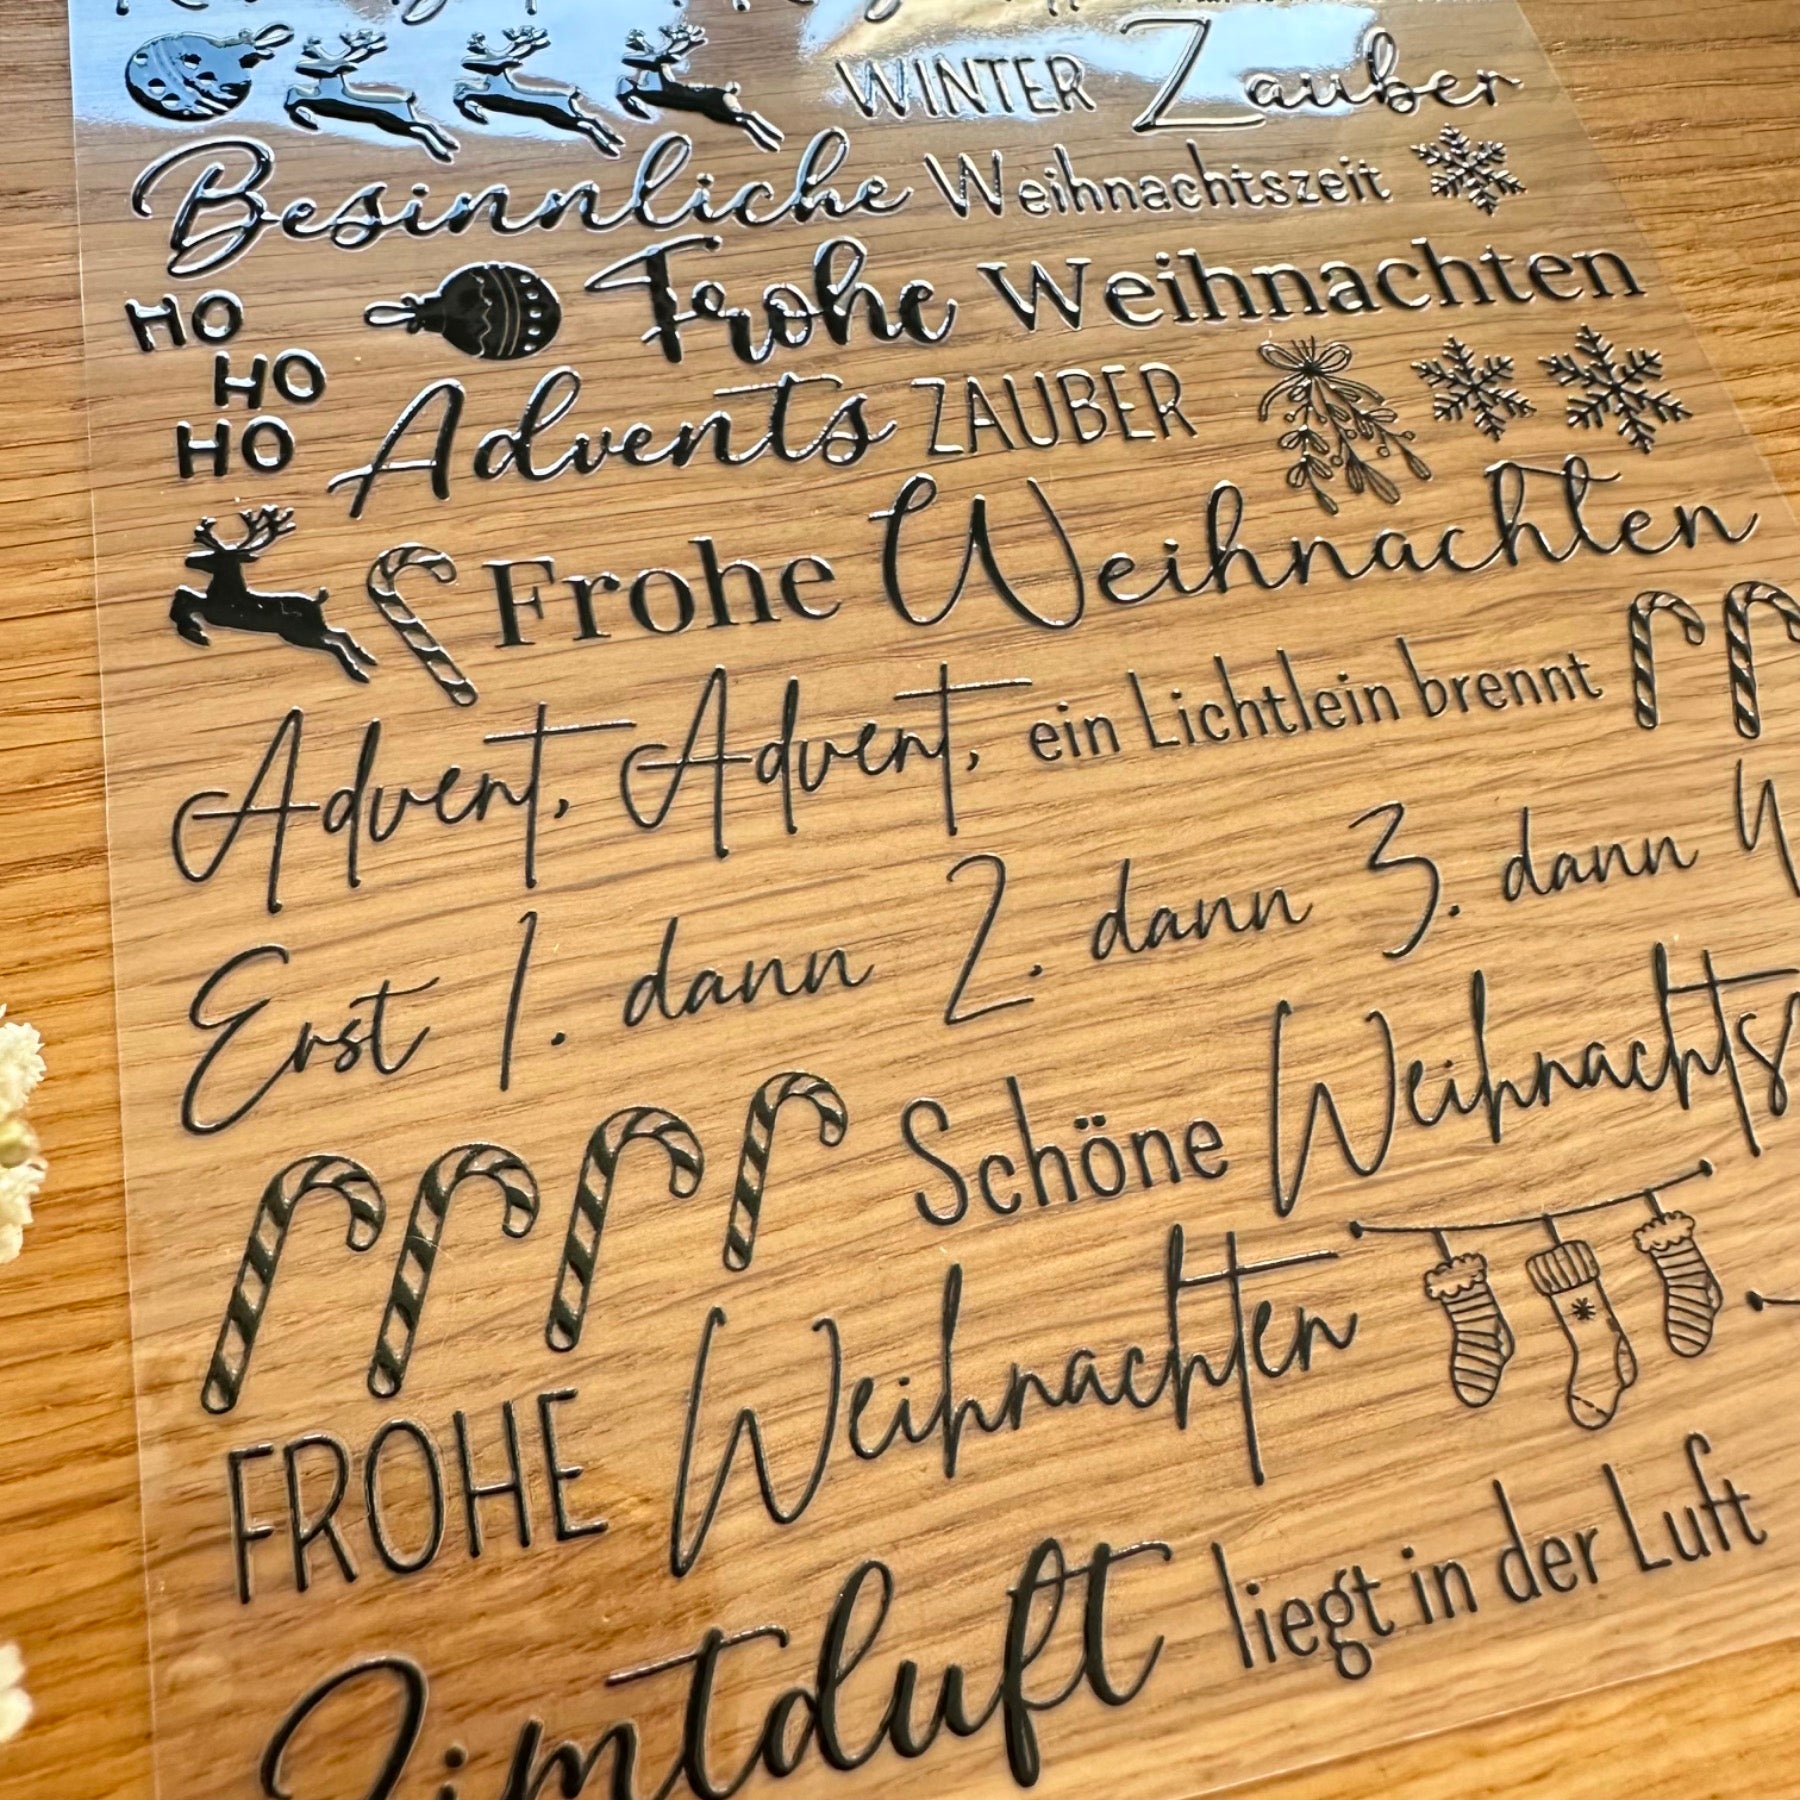 WINTER Zauber
Besinnliche Weihnachtszeit
HO
HO
HO
Frohe Weihnachten
Advents ZAUBER
Frohe Weihnachten
Advent, Advent, ein Lichtlein brennt
Erst 1. dann 2. dann 3. dann 4
Schöne Weihnachts
FROHE Weihnachten
Zimtduft liegt in der Luft